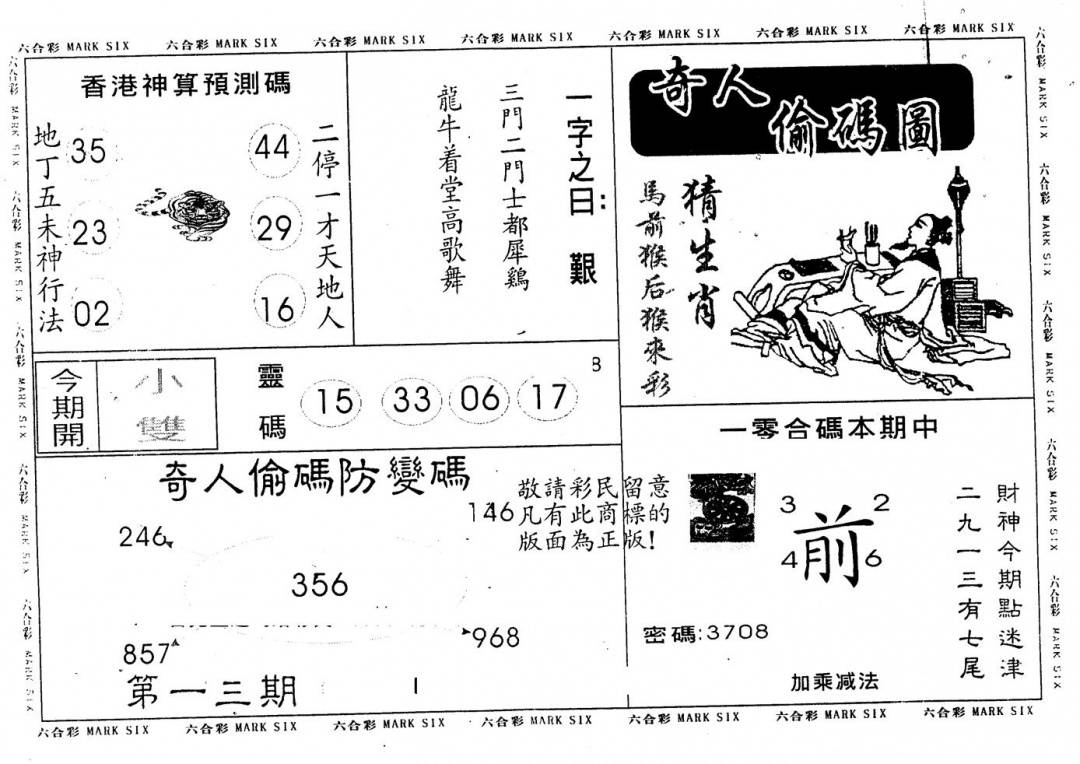 六合彩 MARK SIX 六合彩 MARK SIX 六合彩 MARK SIX 六合彩 MARK SIX 六合彩 MARK SIX 六合彩 MARK SIX 六合彩 MARK SIX
六合彩 MARK SIX 六合彩 MARK SIX 六合彩 MARK SIX 六合彩 MARK SIX 六合彩 MARK SIX
香港神算預測碼
地丁五未神行法
35
44
23
29
02
16
二停一才天地人
一字之曰: 艱
三門二門士都犀鷄
龍牛着堂高歌舞
奇人偷碼圖
猜生肖
馬前猴后猴來彩
今期開
小雙
靈碼
15 33 06 17
B
奇人偷碼防變碼
敬請彩民留意
凡有此商標的
版面為正版!
246
146
356
857
968
第一三期
一零合碼本期中
3 2
前
4 6
財神今期點迷津
二九一三有七尾
密碼:3708
加乘减法
六合彩 MARK SIX 六合彩 MARK SIX 六合彩 MARK SIX 六合彩 MARK SIX 六合彩 MARK SIX
六合彩 MARK SIX 六合彩 MARK SIX 六合彩 MARK SIX 六合彩 MARK SIX 六合彩 MARK SIX 六合彩 MARK SIX 六合彩 MARK SIX